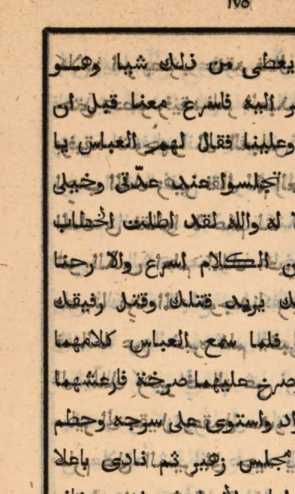 ١٧٥
يعطى من ذلك شيا وهو
اليه فاسرع معنا قبل ان
وعلينا فقال لهم العباس يا
تجلسوا عند عدّتى وخيلى
له والله لقد اطلت الخطاب
الكلام اسرع والا رحنا
يريد قتلك وقتل رفيقك
فلما سمع العباس كلامهما
صرخ عليهما صرخة فارعشهما
واستوى على سرجه وحطم
مجلس زهير ثم نادى باعلا